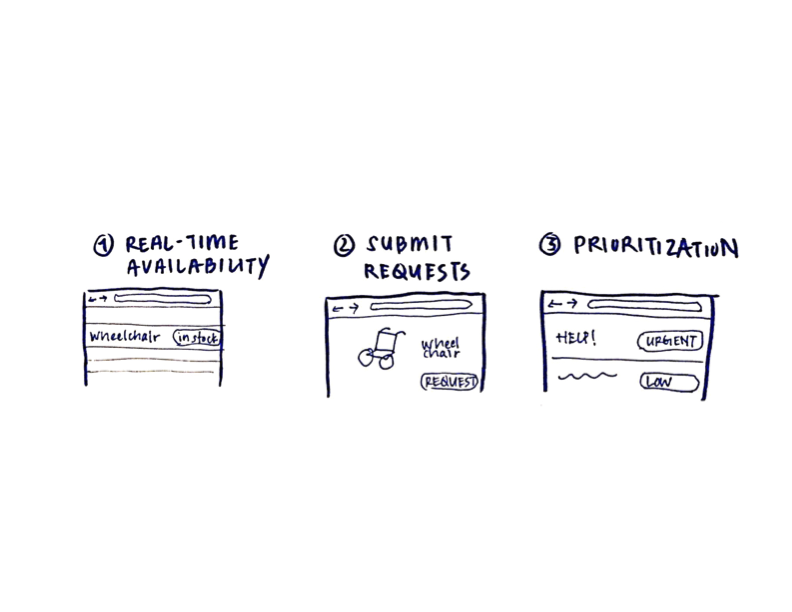 1 REAL-TIME
AVAILABILITY
wheelchair in stock
2 SUBMIT
REQUESTS
wheel
chair
REQUEST
3 PRIORITIZATION
HELP! URGENT
LOW